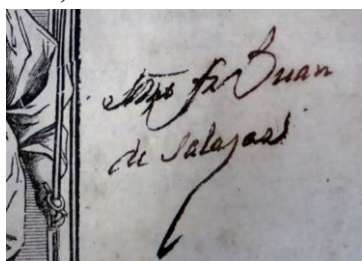 fr Juan
de Salazar